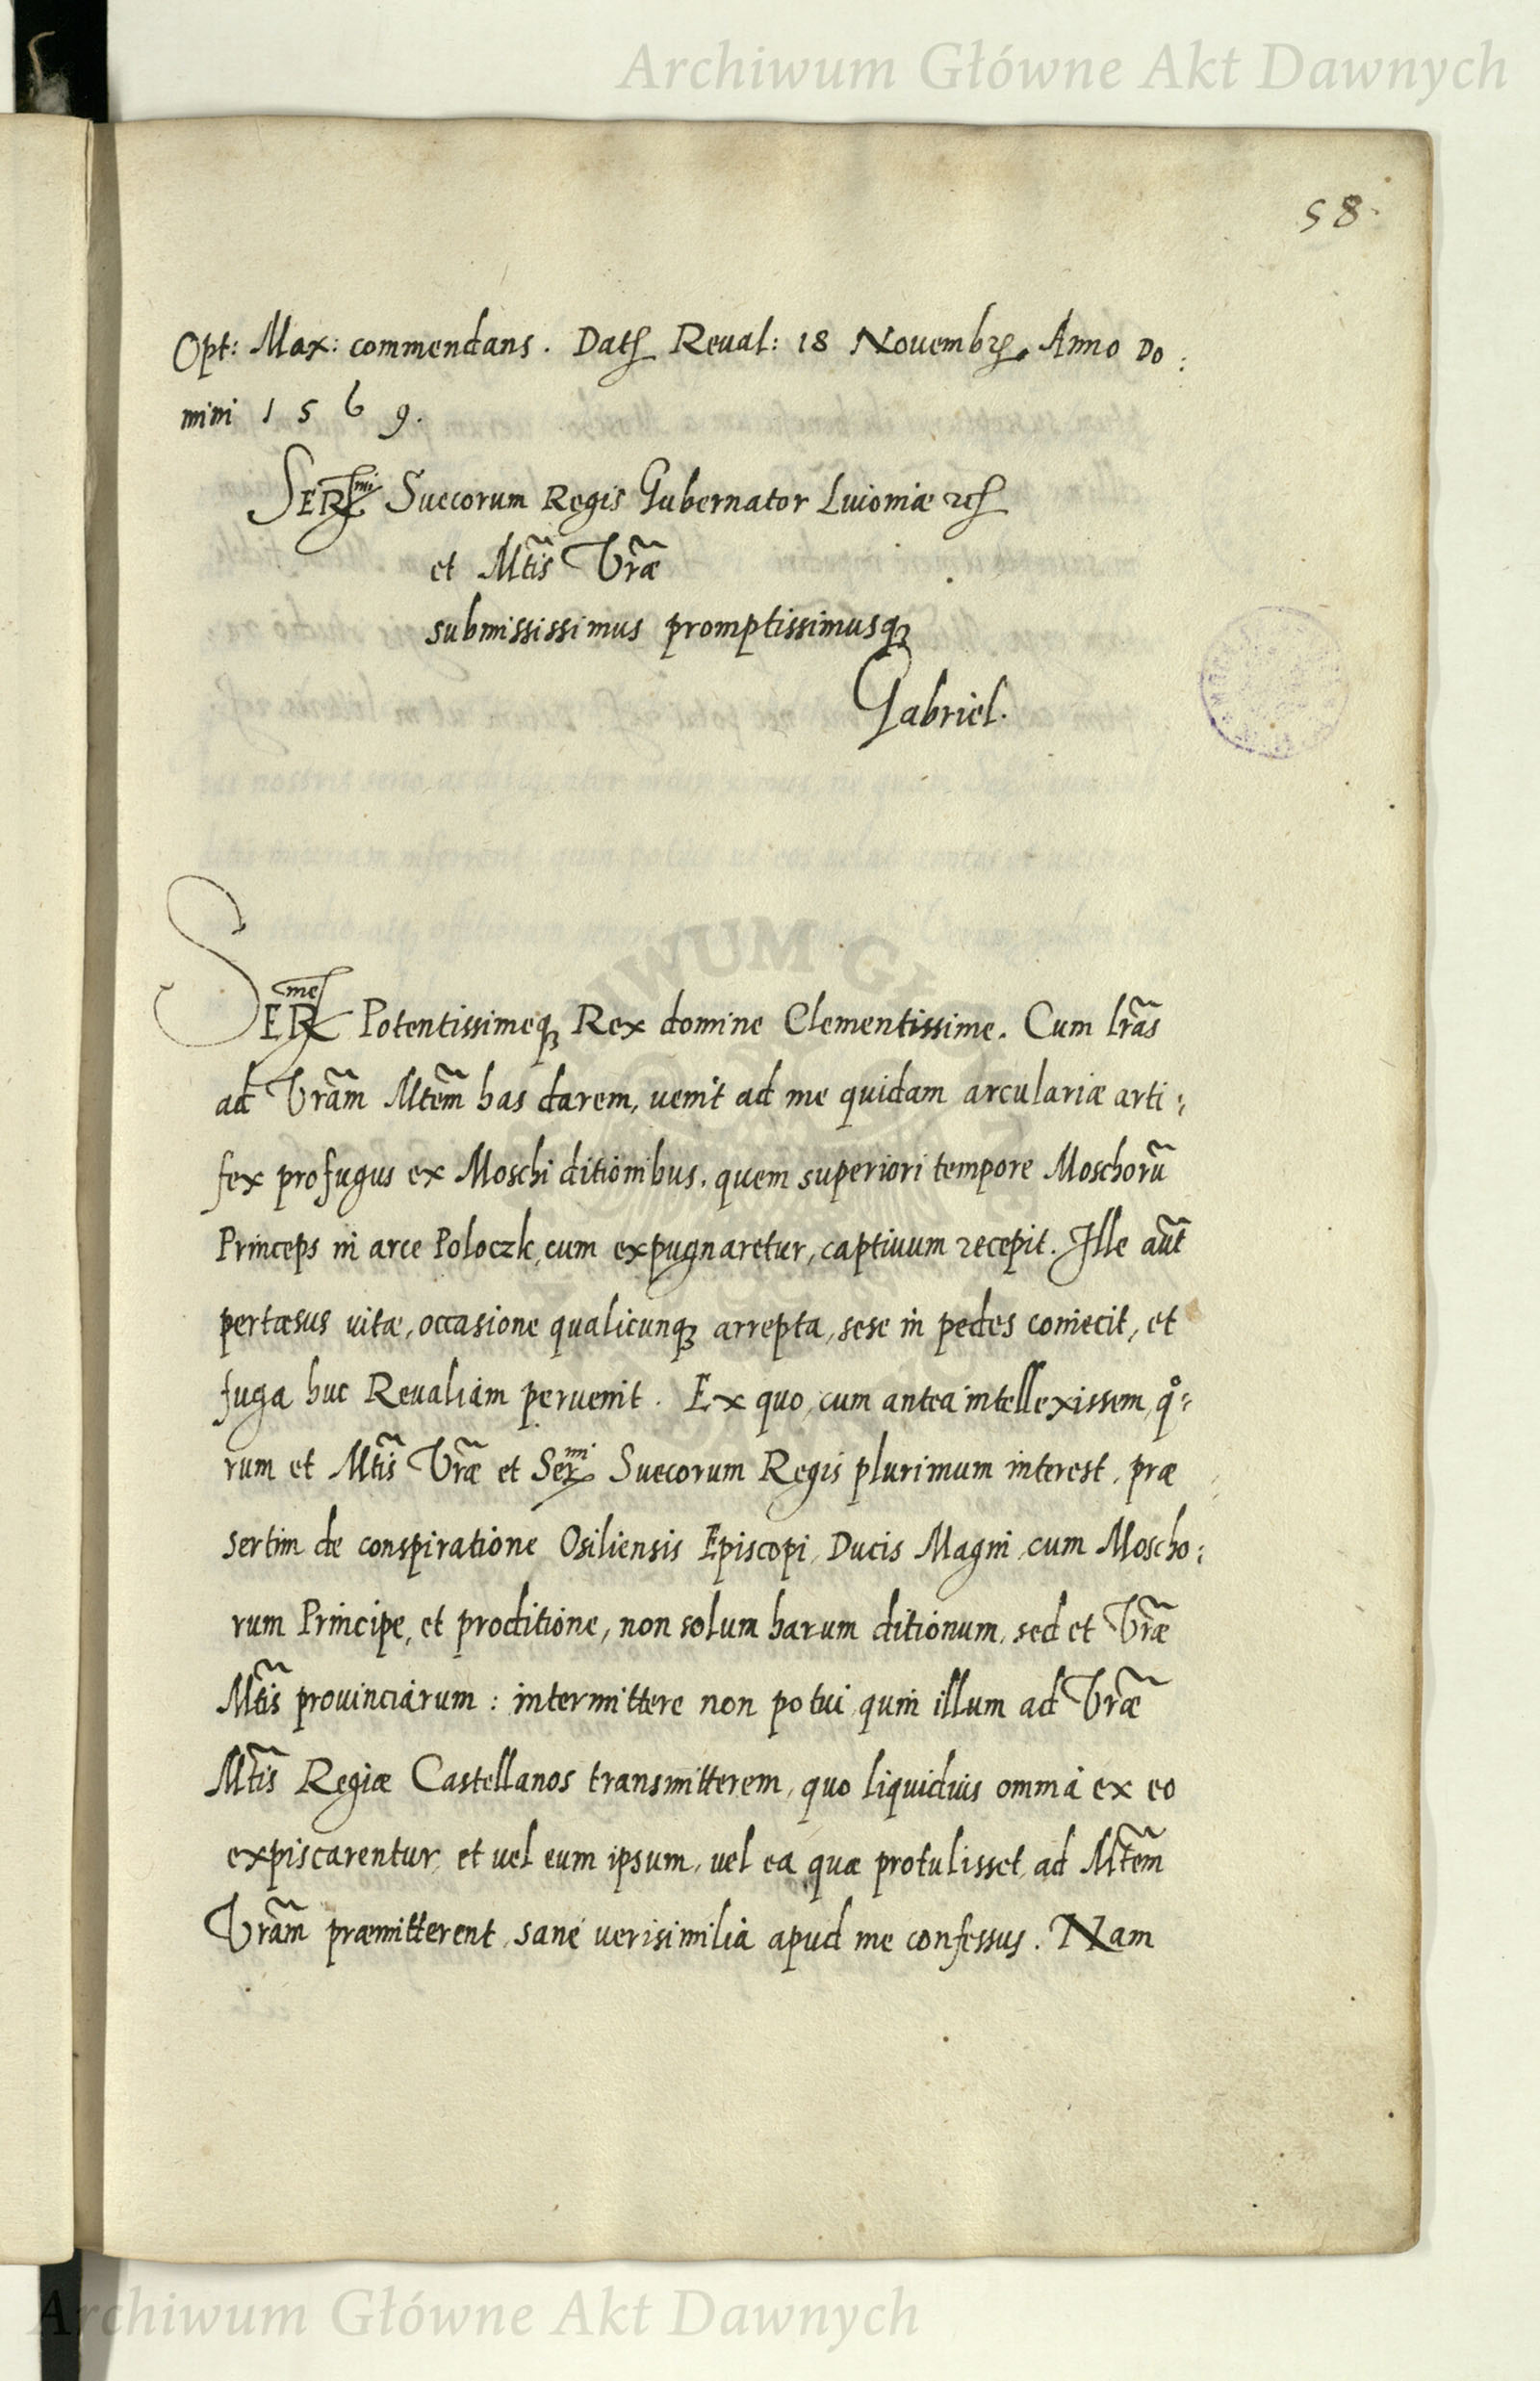 Archiwum Główne Akt Dawnych
58.
Opt: Max: commendans. Datȝ Reual: 18 Nouembrȝ. Anno Do:
mini 1569.
SERmi Suecorum Regis Gubernator Liuoniæ ꝛcȝ
et Mt̃is Vr̃æ
submississimus promptissimusqȝ
Gabriel.
SERme Potentissimeqȝ Rex domine Clementissime. Cum lr̃as
ad Vr̃am Mt̃em has darem, uenit ad me quidam arculariæ arti:
fex profugus ex Moschi ditionibus, quem superiori tempore Moschorũ
Princeps in arce Poloczk, cum expugnaretur, captiuum recepit. Ille aũt
pertæsus uitæ, occasione qualicunqȝ arrepta, sese in pedes coniecit, et
fuga huc Reualiam peruenit. Ex quo, cum antea intellexissem, qo:
rum et Mt̃is Vr̃æ et Sermi Suecorum Regis plurimum interest, præ
sertim de conspiratione Osiliensis Episcopi, Ducis Magni, cum Moscho:
rum Principe, et proditione, non solum harum ditionum, sed et Vr̃æ
Mt̃is prouinciarum: intermittere non potui quin illum ad Vr̃æ
Mt̃is Regiæ Castellanos transmitterem, quo liquidius omnia ex eo
expiscarentur, et uel eum ipsum, uel ea quæ protulisset, ad Mt̃em
Vr̃am præmitterent, sane uerisimilia apud me confessus. Nam
Archiwum Główne Akt Dawnych